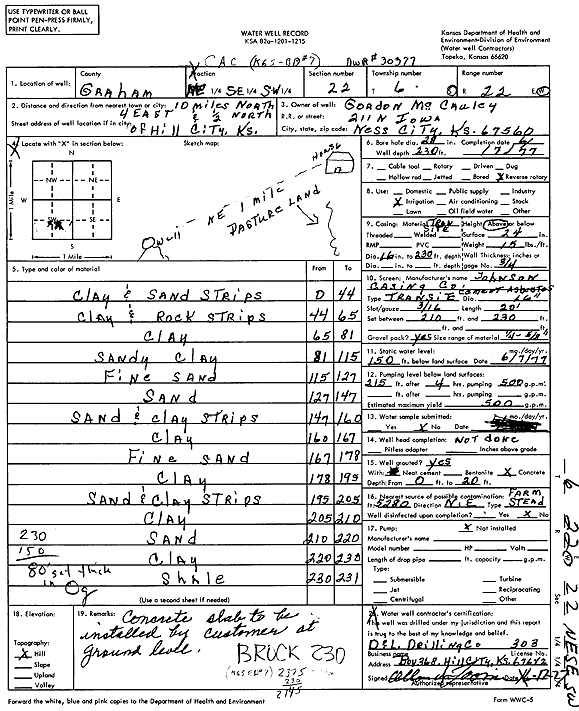 USE TYPEWRITER OR BALL
POINT PEN-PRESS FIRMLY,
PRINT CLEARLY.
WATER WELL RECORD
KSA 82a-1201-1215
Kansas Department of Health and
Environment-Division of Environment
(Water well Contractors)
Topeka, Kansas 66620
CAC (KGS-OB#7) DWR# 30977
1. Location of well: County Graham Fraction NE 1/4 SE 1/4 SW 1/4 Section number 22 Township number T 6 S Range number R 22 E/W
2. Distance and direction from nearest town or city: 10 miles North
4 EAST & 1/2 North
Street address of well location if in city: of Hill City, Ks.
3. Owner of well: Gordon McCauley
R.R. or street: 211 N Iowa
City, state, zip code: Ness City, Ks. 67560
4. Locate with "X" in section below:
Sketch map:
N
NW NE
W E
SW SE
S
1 Mile
1 Mile
House
well NE 1 mile
Pasture Land
6. Bore hole dia. 28 in. Completion date 6/
Well depth 230 ft. 17/77
7. Cable tool Rotary Driven Dug
Hollow rod Jetted Bored X Reverse rotary
8. Use: Domestic Public supply Industry
X Irrigation Air conditioning Stock
Lawn Oil field water Other
9. Casing: Material Tran site Height: Above or below
Threaded Welded Surface 24 in.
RMP PVC Weight 15 lbs./ft.
Dia. 16 in. to 230 ft. depth Wall Thickness: inches or
Dia. in. to ft. depth gage No. 3/4
10. Screen: Manufacturer's name Johnson
Casing Co. Cement Asbestos
Type Transite Dia. 16"
Slot/gauze 3/16 Length 20'
Set between 210 ft. and 230 ft.
ft. and ft.
Gravel pack? yes Size range of material 1/4-5/8"
11. Static water level: mo./day/yr.
150 ft. below land surface Date 6/7/77
12. Pumping level below land surfaces:
215 ft. after 4 hrs. pumping 500 g.p.m.
ft. after hrs. pumping g.p.m.
Estimated maximum yield 500 g.p.m.
13. Water sample submitted: mo./day/yr.
Yes X No Date
14. Well head completion: Not done
Pitless adapter Inches above grade
15. Well grouted? yes
With: Neat cement Bentonite X Concrete
Depth: From 0 ft. to 20 ft.
16. Nearest source of possible contamination: Farm
ft. 5280 Direction N.E Type Stead
Well disinfected upon completion? Yes X No
17. Pump: X Not installed
Manufacturer's name
Model number HP Volts
Length of drop pipe ft. capacity g.p.m.
Type:
Submersible Turbine
Jet Reciprocating
Centrifugal Other
5. Type and color of material From To
Clay & Sand Strips 0 44
Clay & Rock Strips 44 65
Clay 65 81
Sandy Clay 81 115
Fine Sand 115 127
Sand 127 147
Sand & Clay Strips 147 160
Clay 160 167
Fine Sand 167 178
Clay 178 195
Sand & Clay Strips 195 205
Clay 205 210
230 Sand 210 220
150 Clay 220 230
80' sat thick Shale 230 231
in Og
(Use a second sheet if needed)
18. Elevation:
Topography:
X Hill
Slope
Upland
Valley
19. Remarks: Concrete slab to be
installed by customer at
ground level.
BRUCK 230
(KGS-OB#7) 2375
230
2145
20. Water well contractor's certification:
This well was drilled under my jurisdiction and this report
is true to the best of my knowledge and belief.
D&L Drilling Co 303
Business name License No.
Address Box 368, Hill City, Ks. 67642
Signed Date
Authorized representative
Forward the white, blue and pink copies to the Department of Health and Environment
Form WWC-5
T 6 R 22 W Sec 22 NE SE SW
1/4 1/4 1/4